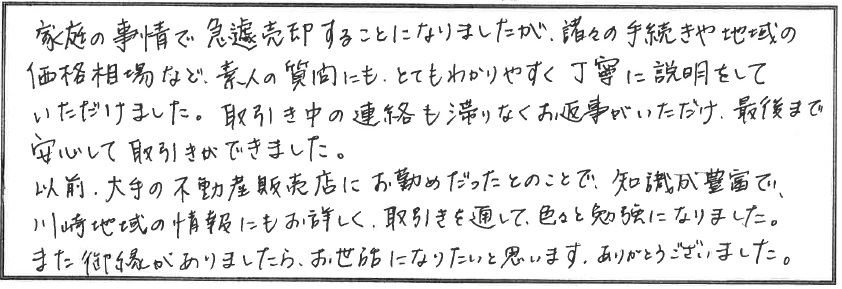 家庭の事情で急遽売却することになりましたが、諸々の手続きや地域の
価格相場など、素人の質問にも、とてもわかりやすく丁寧に説明をして
いただけました。取引き中の連絡も滞りなくお返事がいただけ、最後まで
安心して取引きができました。
以前、大手の不動産販売店にお勤めだったとのことで、知識が豊富で、
川崎地域の情報にもお詳しく、取引きを通して、色々と勉強になりました。
また御縁がありましたら、お世話になりたいと思います。ありがとうございました。